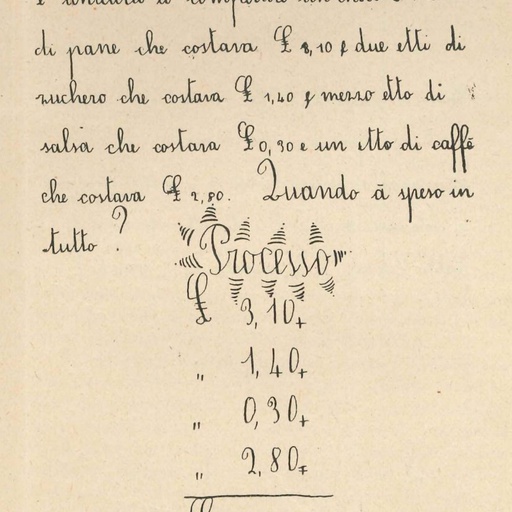 di pane che costava £ 3,10 e due etti di
zuchero che costava £ 1,40 e mezzo etto di
salsa che costava £ 0,30 e un etto di caffè
che costava £ 2,80. Quando ā speso in
tutto?
Processo
£ 3,10+
„ 1,40+
„ 0,30+
„ 2,80=